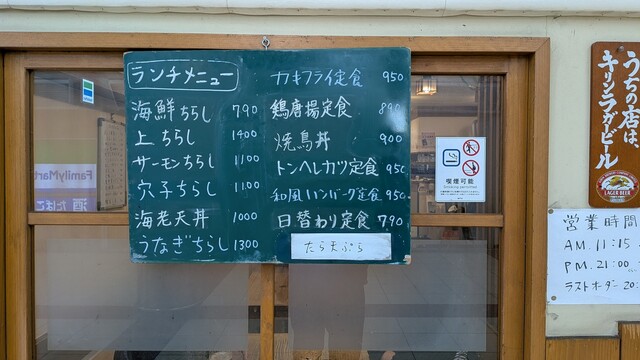 ランチメニュー
海鮮ちらし 790
上ちらし 1900
サーモンちらし 1100
穴子ちらし 1100
海老天丼 1000
うなぎちらし 1300
カキフライ定食 950
鶏唐揚定食 890
焼鳥丼 900
トンヘレカツ定食 950
和風ハンバーグ定食 950
日替わり定食 790
たら天ぷら
FamilyMart
酒 たばこ
喫煙可能
Smoking permitted
うちの店は、
キリンラガービール
LAGER BEER
営業時間
AM.11:15
PM.21:00
ラストオーダー 20: